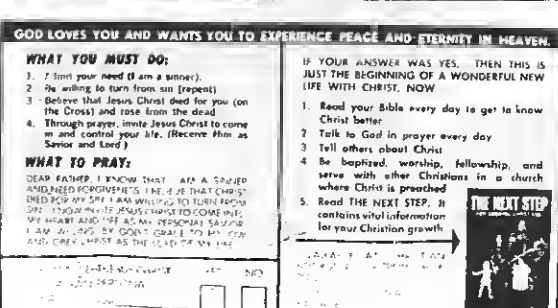 GOD LOVES YOU AND WANTS YOU TO EXPERIENCE PEACE AND ETERNITY IN HEAVEN.
WHAT YOU MUST DO:
1. your need (I am a sinner).
2 Be willing to turn from sin (repent)
3 Believe that Jesus Christ died for you (on
the Cross) and rose from the dead
4. Through prayer, invite Jesus Christ to come
in and control your life. (Receive Him as
Savior and Lord)
WHAT TO PRAY:
DEAR FATHER, I KNOW THAT I AM A SINNER
AND NEED FORGIVENESS. I BELIEVE THAT CHRIST
DIED FOR MY SIN. I AM WILLING TO TURN FROM
SIN. I NOW INVITE JESUS CHRIST TO COME INTO
MY HEART AND LIFE AS MY PERSONAL SAVIOR.
I AM WILLING, BY GOD'S GRACE TO FOLLOW
AND OBEY CHRIST AS THE LORD OF MY LIFE
YES NO
IF YOUR ANSWER WAS YES, THEN THIS IS
JUST THE BEGINNING OF A WONDERFUL NEW
LIFE WITH CHRIST. NOW
1. Read your Bible every day to get to know
Christ better
2 Talk to God in prayer every day
3 Tell others about Christ
4 Be baptized, worship, fellowship, and
serve with other Christians in a church
where Christ is preached
5. Read THE NEXT STEP. It
contains vital information
for your Christian growth
THE NEXT STEP